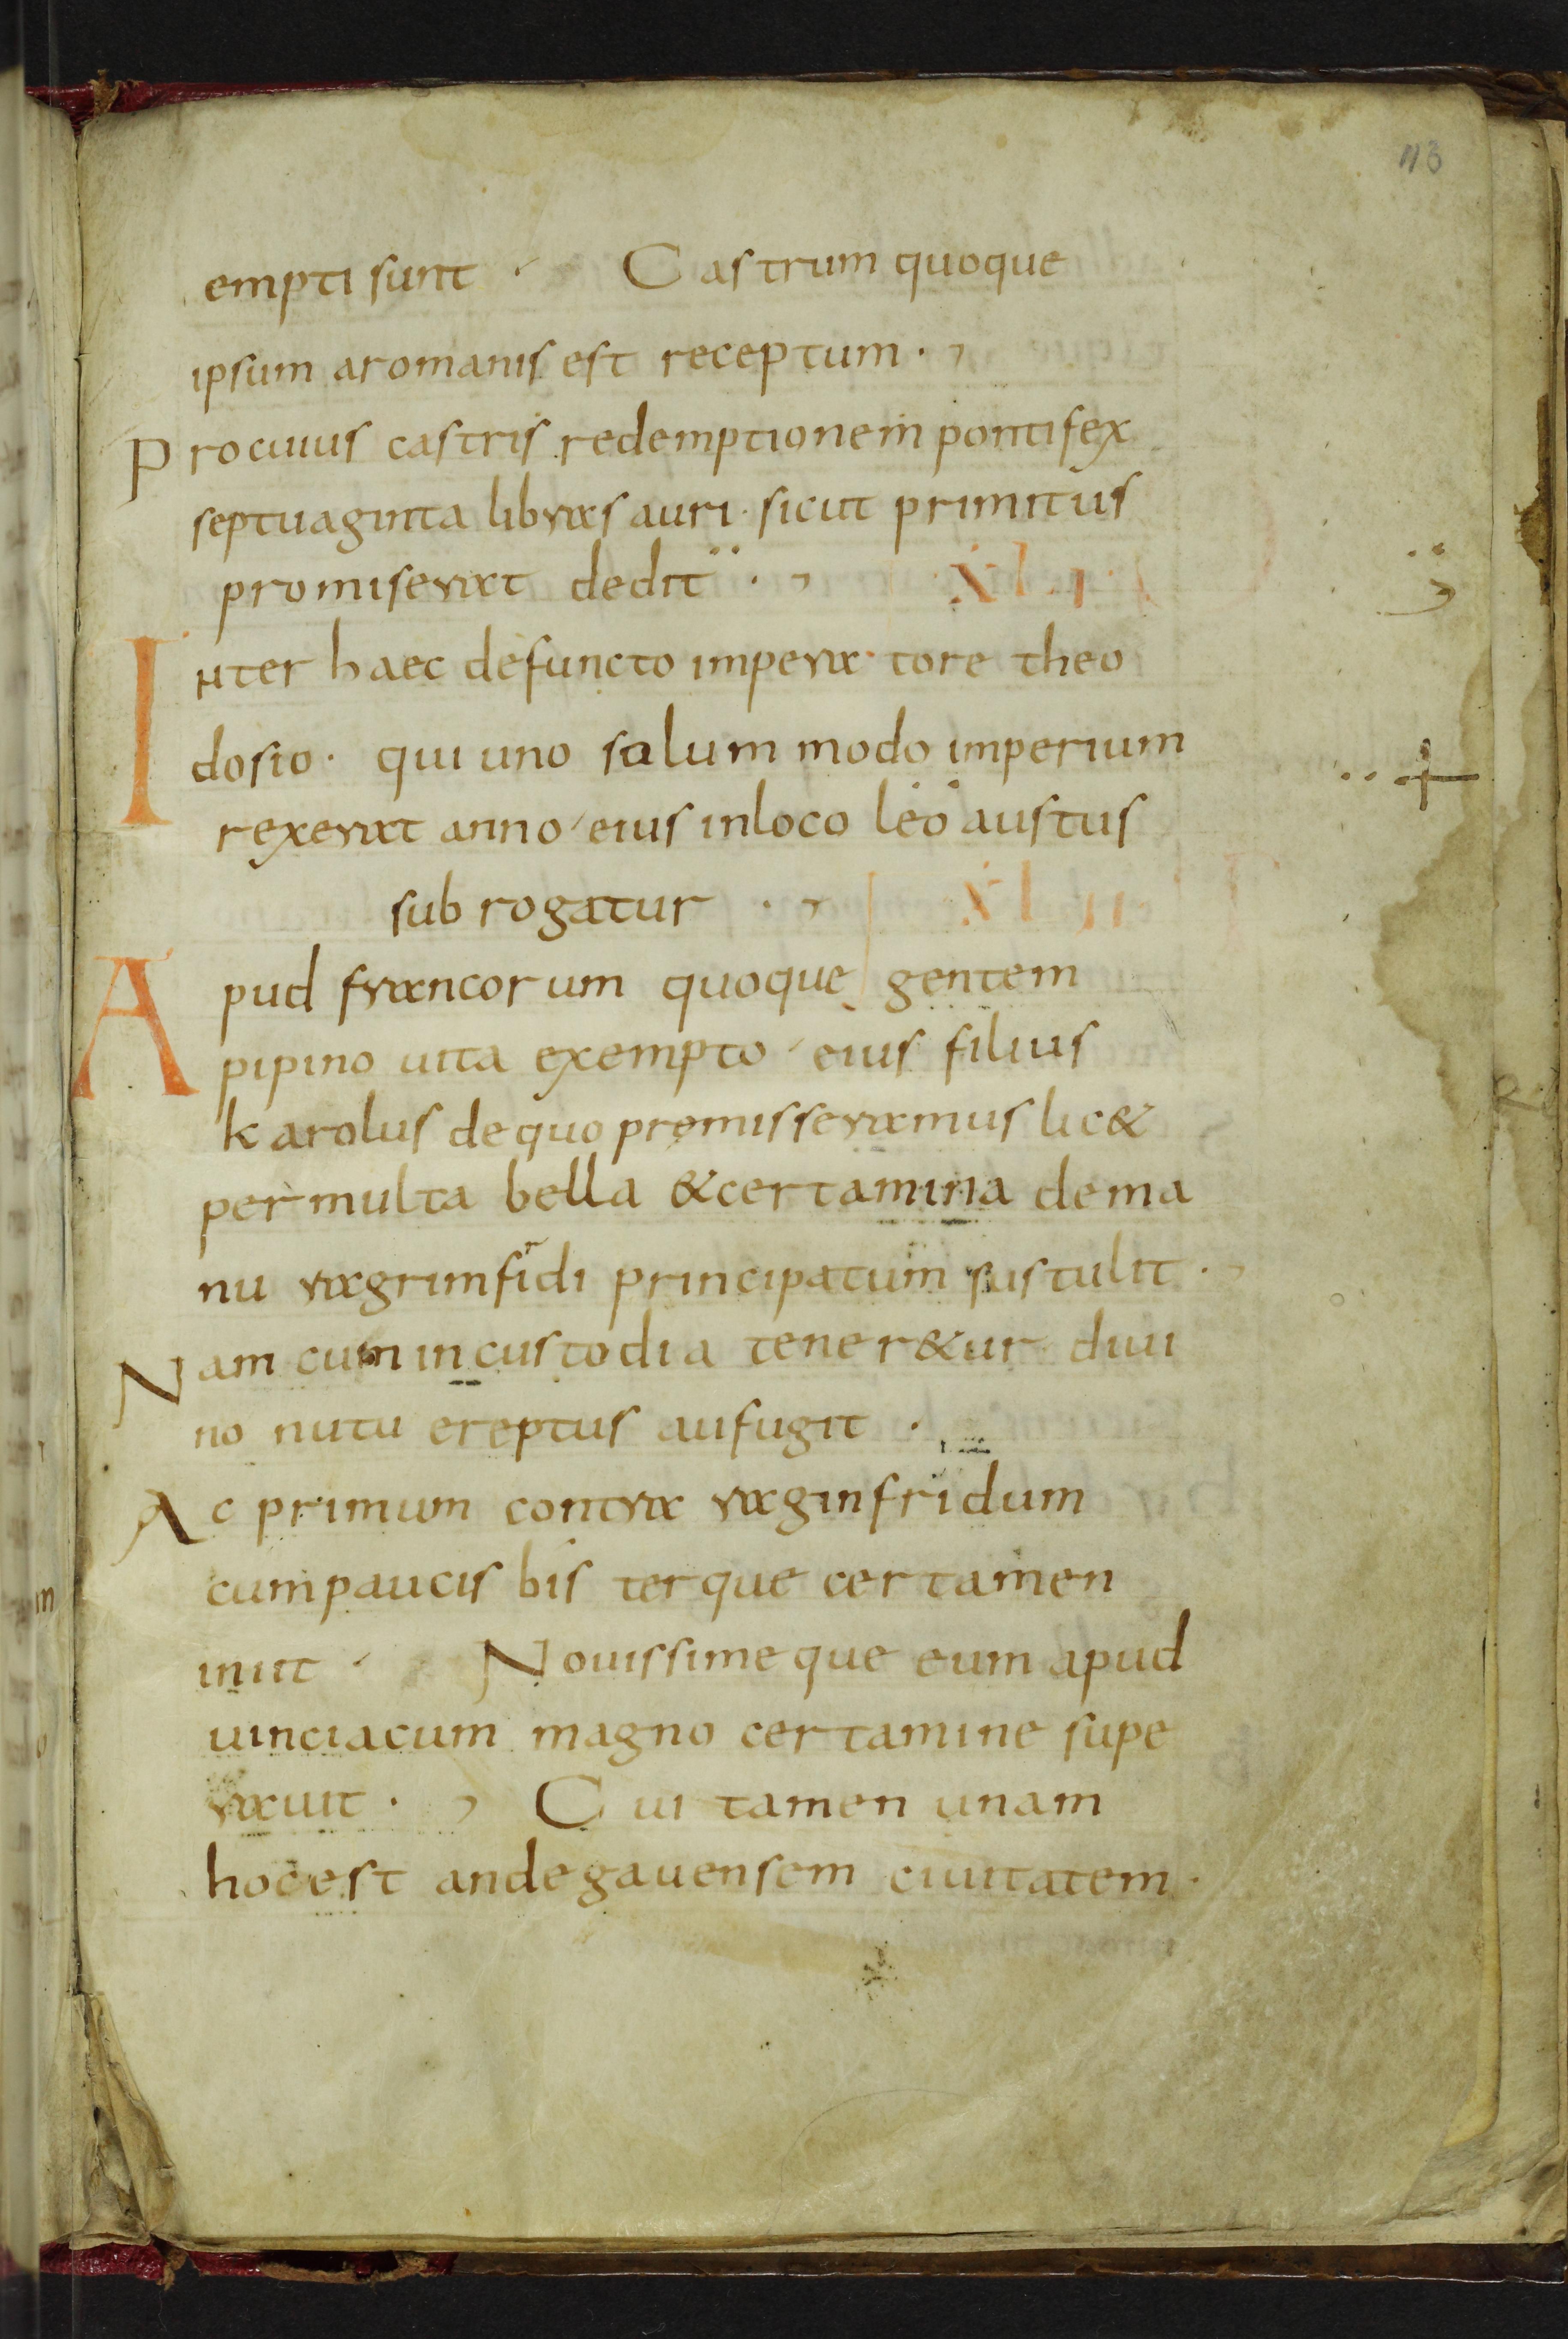 113
empti sunt · Castrum quoque
ipsum aromanis est receptum ·
Procuius castris redemptionem pontifex
septuaginta libras auri · sicut primitus
promiserat dedit · XLI
Inter haec defuncto impera tore theo
dosio · qui uno solum modo imperium
rexerat anno eius inloco leo austus
sub rogatur · XLII
Apud francorum quoque gentem
pipino uita exempto eius filius
karolus dequo premisseramus lic&
per multa bella &certamina dema
nu ragrimfridi principatum sustulit ·
Nam cum incustodia tener&ur diui
no nutu ereptus aufugit ·
Ac primum contra raginfridum
cumpaucis bis terque certamen
iniit · Nouissimeque eum apud
uinciacum magno certamine supe
rauit · Cui tamen unam
hocest andegauensem ciuitatem ·